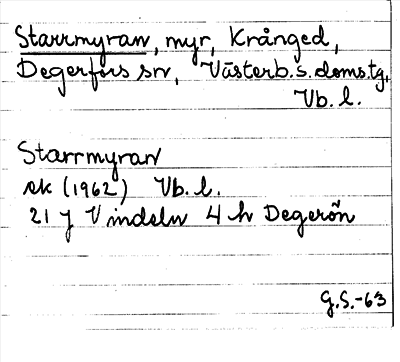 Starrmyran, myr, Krånged,
Degerfors sn, Västerb.s.doms.tg,
Vb. l.
Starrmyran
ek (1962) Vb. l.
21 J Vindeln 4 h Degerön
G.S.-63